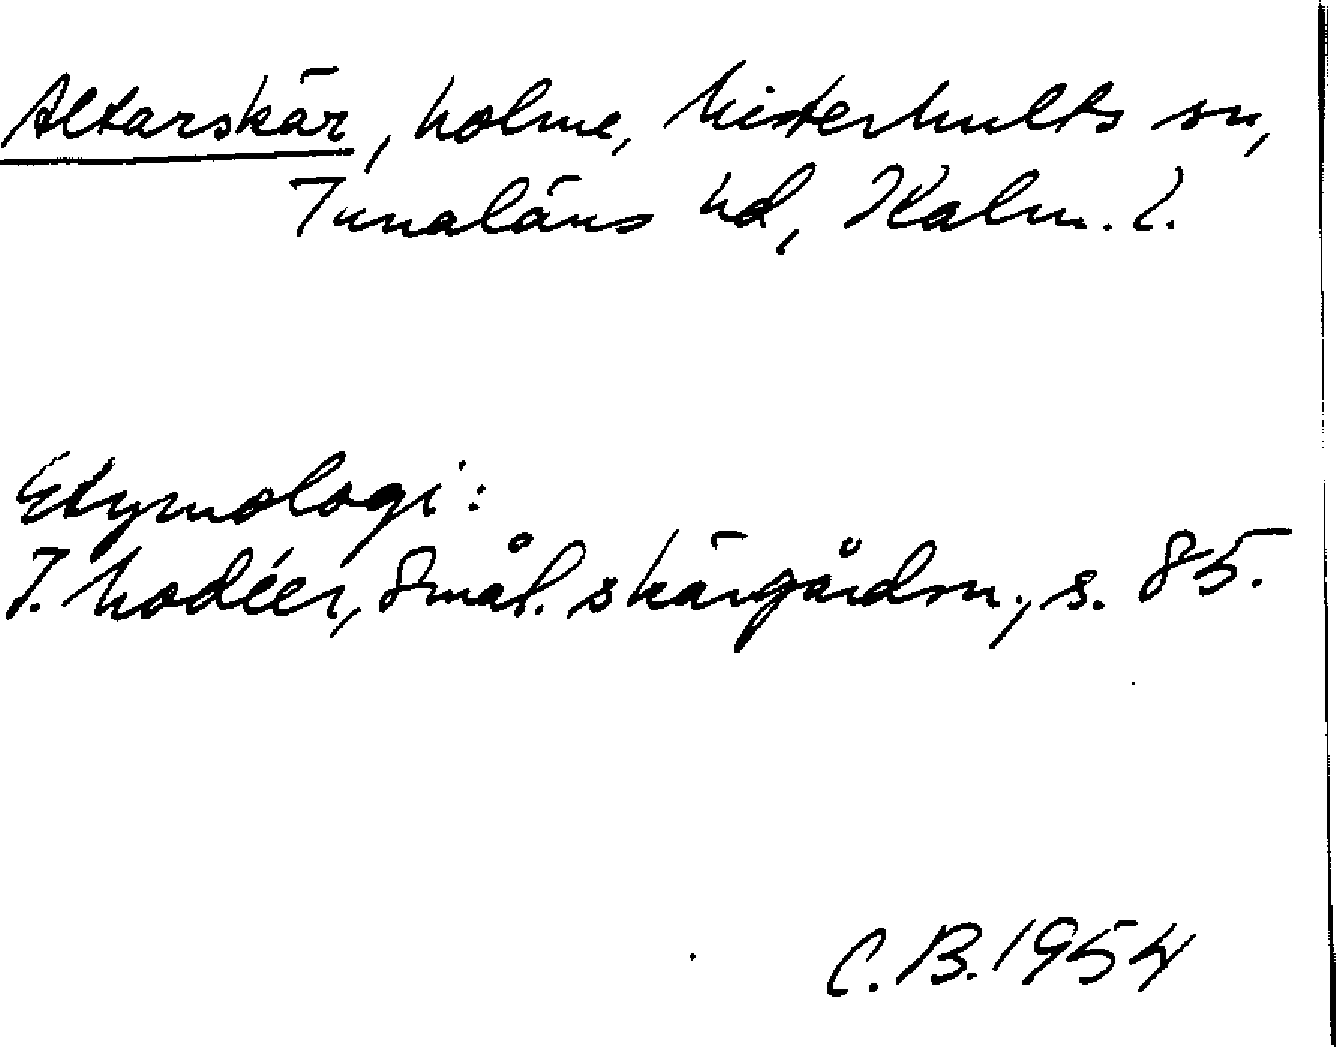 Altarskär, holme, Misterhults sn,
Tunaläns hd, Kalm. l.
Etymologi:
I. Modéer, Smål. skärgårdsn., s. 85.
C. B. 1954